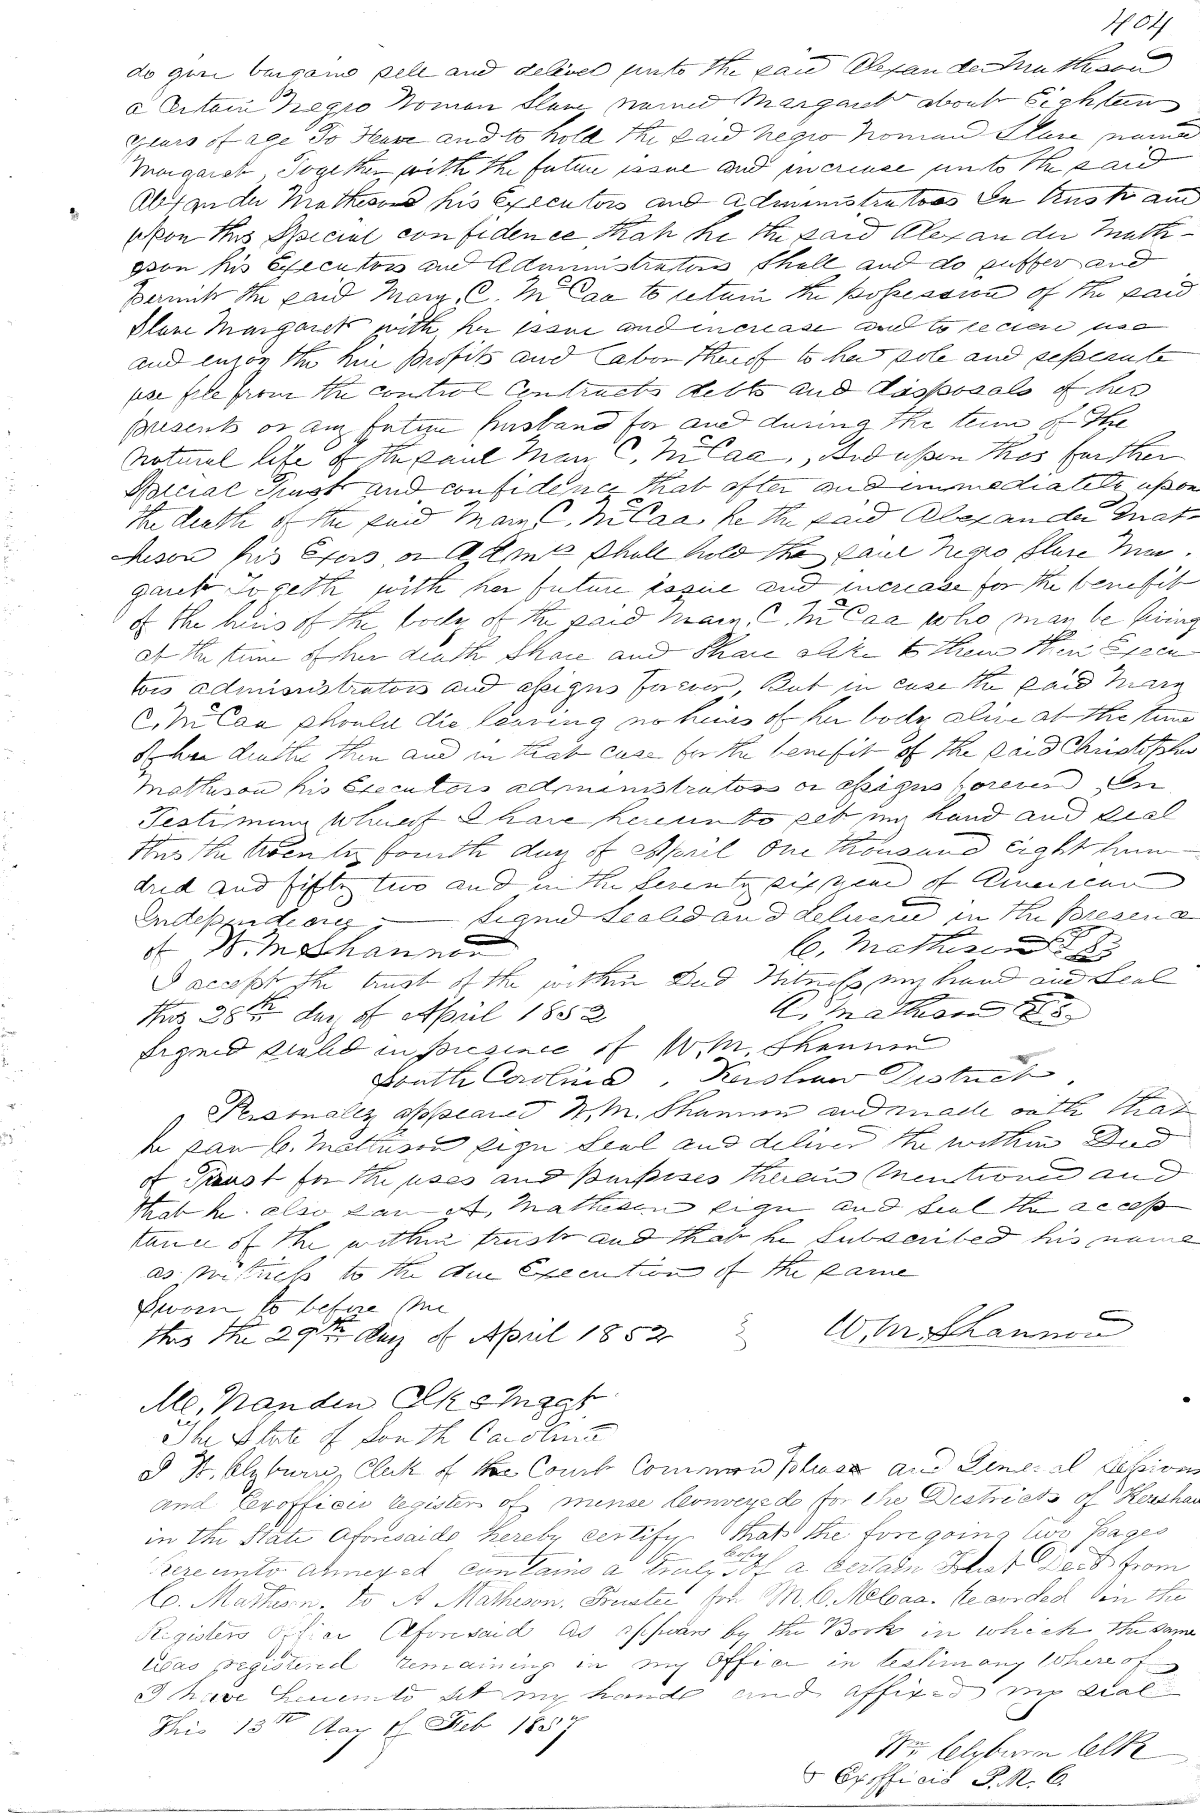 404
do give bargain sell and deliver unto the said Alexander Matheson
a Certain Negro Woman Slave named Margaret about Eighteen
years of age To Have and to hold the said negro Woman Slave named
Margaret, Together with the future issue and increase unto the said
Alexander Matheson his Executors and administrators In trust and
upon this Special confidence that he the said Alexander Math-
eson his Executors and Administrators Shall and do suffer and
permit the said Mary, C. McCaa to retain the possession of the said
Slave Margaret with her issue and increase and to recieve use
and enjoy the hire profits and labor thereof to her sole and seperate
use free from the control Contracts debts and disposals of her
present or any future husband for and during the term of the
natural life of the said Mary C. McCaa., And upon this further
Special Trust and confidence that after and immediately upon
the death of the said Mary, C. McCaa he the said Alexander Mat-
heson his Exors or Admrs shall hold the said Negro Slave Mar.
garet Togeth with her future issue and increase for the benefit
of the heirs of the body of the said Mary, C. McCaa who may be living
at the time of her death Share and Share alike to them their Execu
tors administrators and assigns forever, But in case the said Mary
C. McCaa should die leaving no heirs of her body alive at the time
of her death then and in that case for the benefit of the said Christopher
Matheson his Executors administrators or assigns forever In
Testimony Whereof I have hereunto set my hand and seal
this the twenty fourth day of April One thousand Eight hun-
dred and fifty two and in the Seventy six year of American
Independence — Signed Sealed and delivered in the presence
of W. M Shannon C. Matheson L S
I accept the trust of the within Deed Witness my hand and Seal
this 28th day of April 1852 A. Matheson L S.
Signed sealed in presence of W. M. Shannon
South Carolina, Kershaw District.
Personally appeared W. M. Shannon and made oath that
he saw C. Matheson sign Seal and deliver the within Deed
of Trust for the uses and purposes therein Mentioned and
that he also saw A. Matheson sign and seal the accep
tance of the within trust and that he Subscribed his name
as witness to the due Execution of the same
Sworn to before Me
this the 29th day of April 1852 W. M. Shannon
M, Naudin Clk & Magt
The State of South Carolina
I W. Clyburn Clerk of the Court Common pleas and General Sessions
and Exofficio register of mense Conveyeds for the Districts of Kershaw
in the State Aforesaid hereby certify that the foregoing two pages
hereunto annexed contains a truly Copy of a Certain Trust Deed from
C. Matheson. to A Matheson. Trustee for M. C. McCaa. Recorded in the
Registers Office Aforesaid as appears by the Book in which the same
was registered remaining in my office in testimony Whereof
I have hereunto set my hand and affixed my seal
This 13th day of Feb 1857
Wm Clyburn Clk
& Exofficio R. M. C.